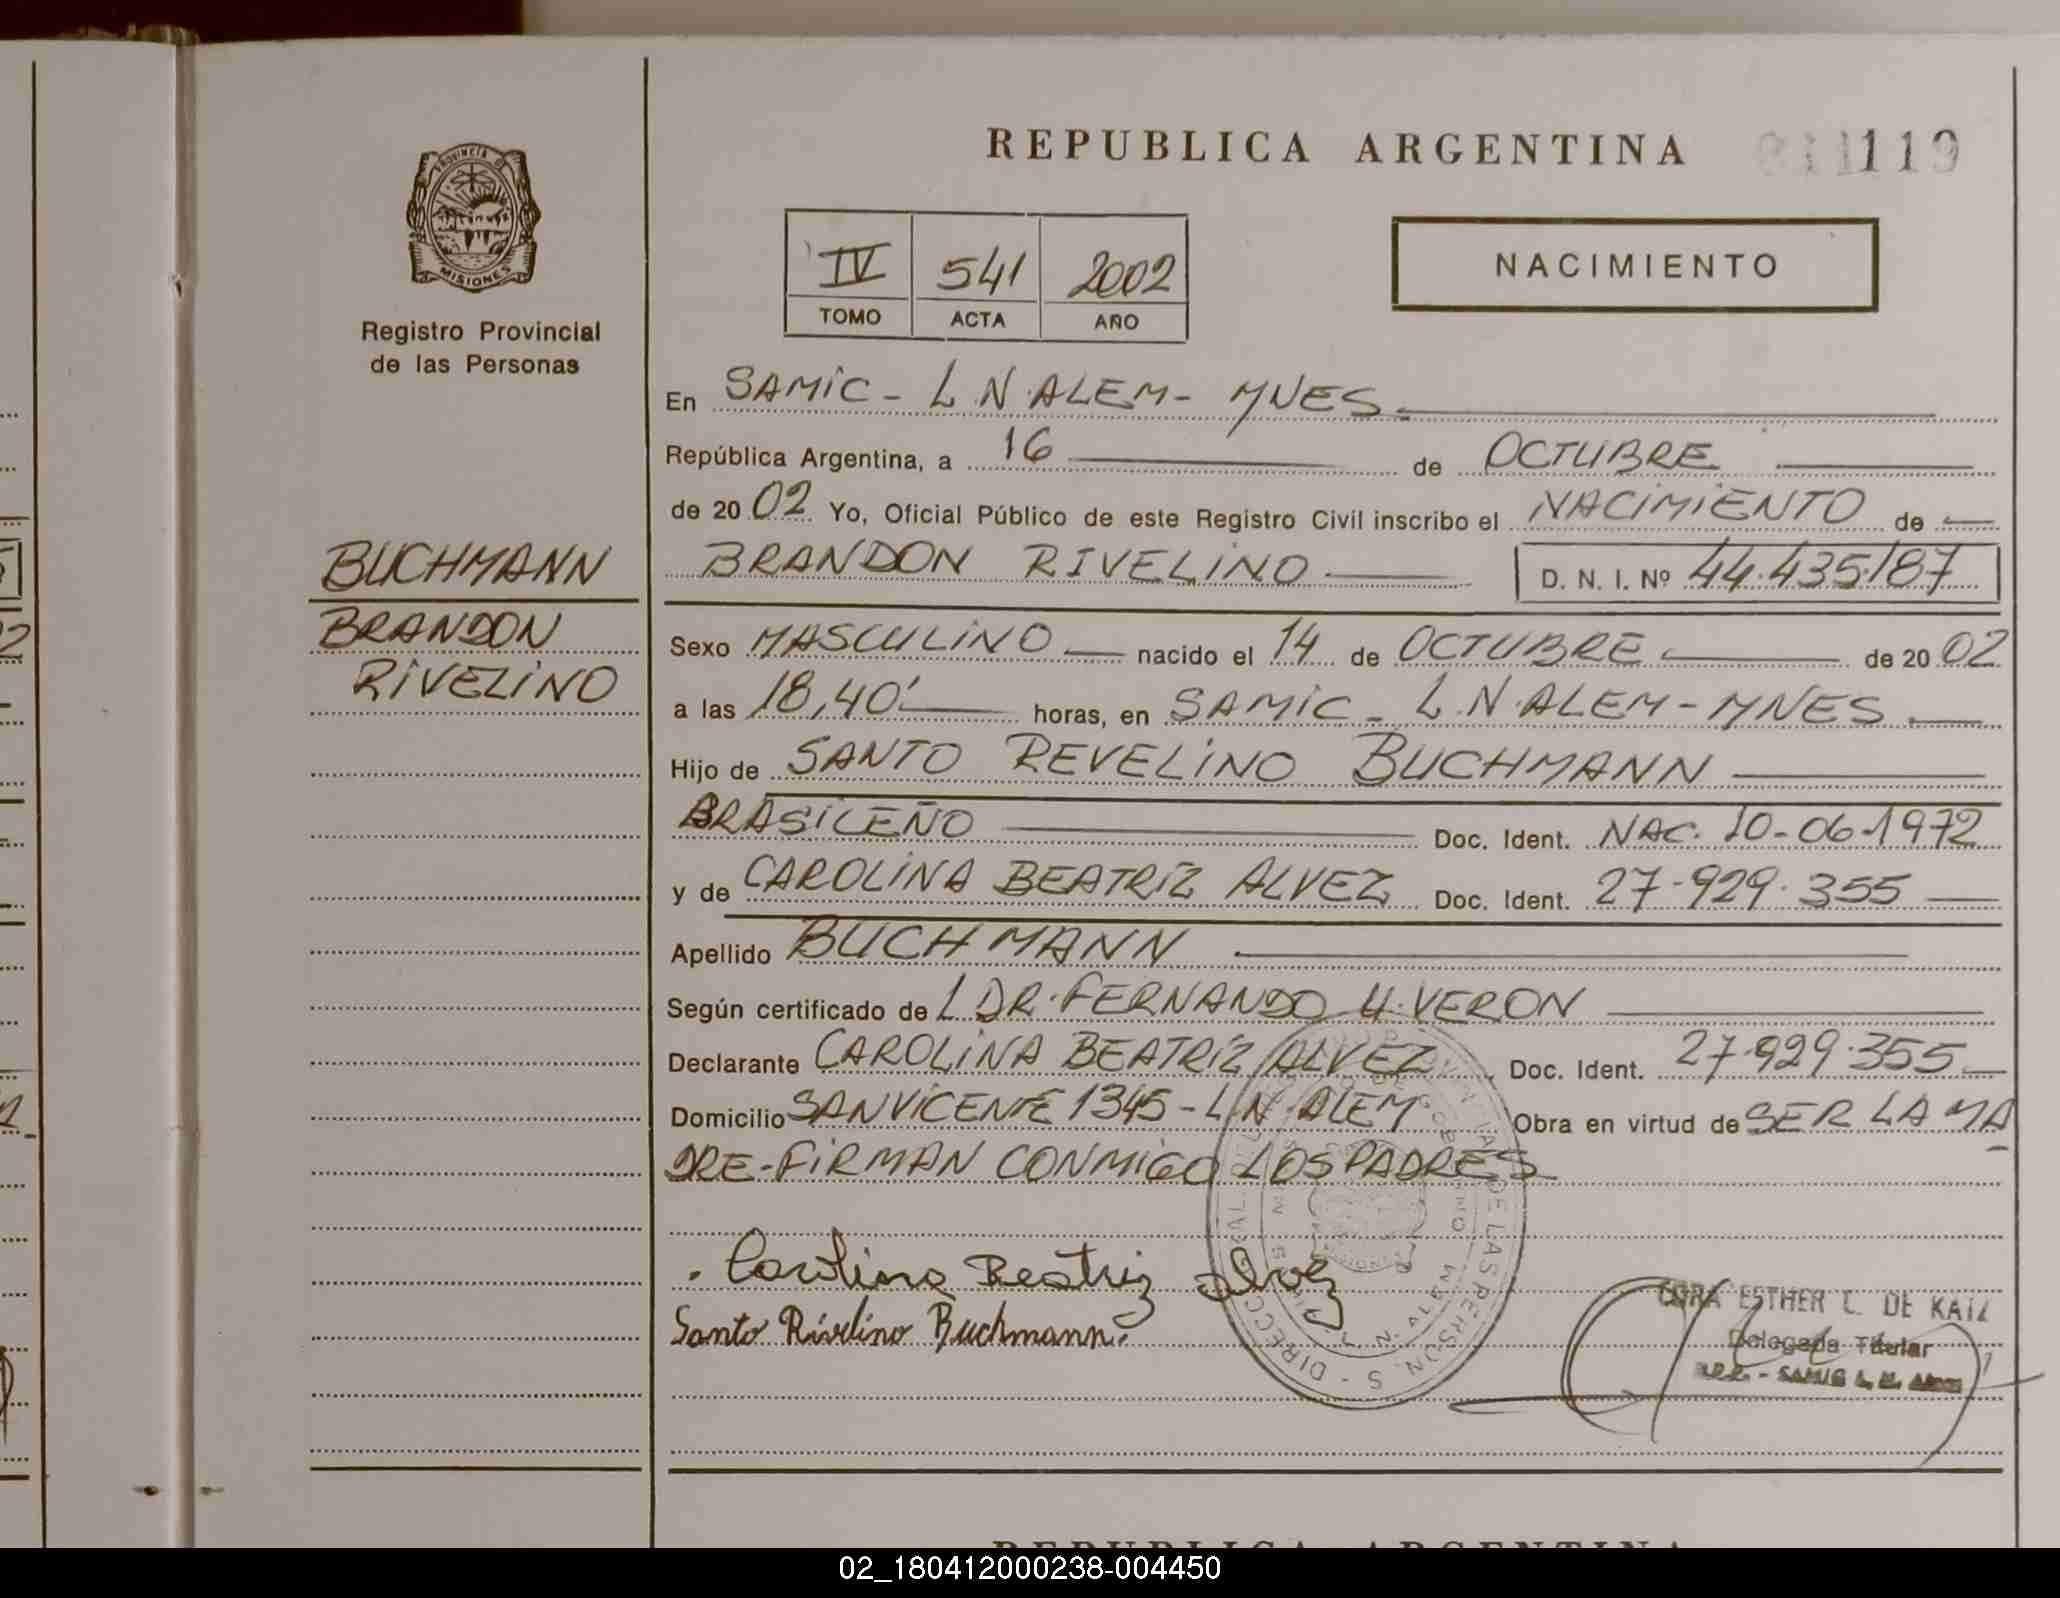 REPUBLICA ARGENTINA
119
PROVINCIA DE
MISIONES
Registro Provincial
de las Personas
IV 541 2002
TOMO ACTA AÑO
NACIMIENTO
En SAMIC - L N. ALEM - MNES
República Argentina, a 16 de OCTUBRE
de 2002 Yo, Oficial Público de este Registro Civil inscribo el NACIMIENTO de
BRANDON RIVELINO D. N. I. Nº 44.435.187
BUCHMANN
BRANDON
RIVELINO
Sexo MASCULINO nacido el 14 de OCTUBRE de 2002
a las 18,40' horas, en SAMIC - L N. ALEM - MNES
Hijo de SANTO REVELINO BUCHMANN
BRASILEÑO Doc. Ident. NAC. 10-06-1972
y de CAROLINA BEATRIZ ALVEZ Doc. Ident. 27.929.355
Apellido BUCHMANN
Según certificado de L DR. FERNANDO H. VERON
Declarante CAROLINA BEATRIZ ALVEZ Doc. Ident. 27.929.355
Domicilio SAN VICENTE 1345 - L.N. ALEM Obra en virtud de SER LA MA
DRE - FIRMAN CONMIGO LOS PADRES
Carolina Beatriz Alvez
Santo Rivelino Buchmann
CORA ESTHER L. DE KAIZ
Delegada Titular
SAMIC L. N. ALEM
REPUBLICA ARGENTINA
02_180412000238-004450